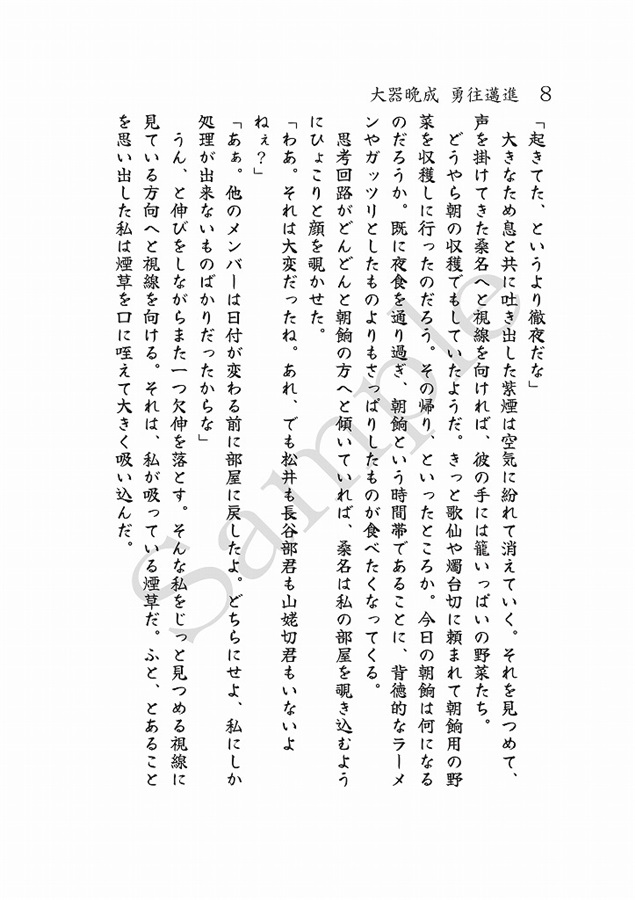 大器晩成 勇往邁進 8
「起きてた、というより徹夜だな」
　大きなため息と共に吐き出した紫煙は空気に紛れて消えていく。それを見つめて、
声を掛けてきた桑名へと視線を向ければ、彼の手には籠いっぱいの野菜たち。
　どうやら朝の収穫でもしていたようだ。きっと歌仙や燭台切に頼まれて朝餉用の野
菜を収穫しに行ったのだろう。その帰り、といったところか。今日の朝餉は何になる
のだろうか。既に夜食を通り過ぎ、朝餉という時間帯であることに、背徳的なラーメ
ンやガッツリとしたものよりもさっぱりしたものが食べたくなってくる。
　思考回路がどんどんと朝餉の方へと傾いていれば、桑名は私の部屋を覗き込むよう
にひょこりと顔を覗かせた。
「わあ。それは大変だったね。あれ、でも松井も長谷部君も山姥切君もいないよ
ねぇ？」
「あぁ。他のメンバーは日付が変わる前に部屋に戻したよ。どちらにせよ、私にしか
処理が出来ないものばかりだったからな」
　うん、と伸びをしながらまた一つ欠伸を落とす。そんな私をじっと見つめる視線に
見ている方向へと視線を向ける。それは、私が吸っている煙草だ。ふと、とあること
を思い出した私は煙草を口に咥えて大きく吸い込んだ。
Sample